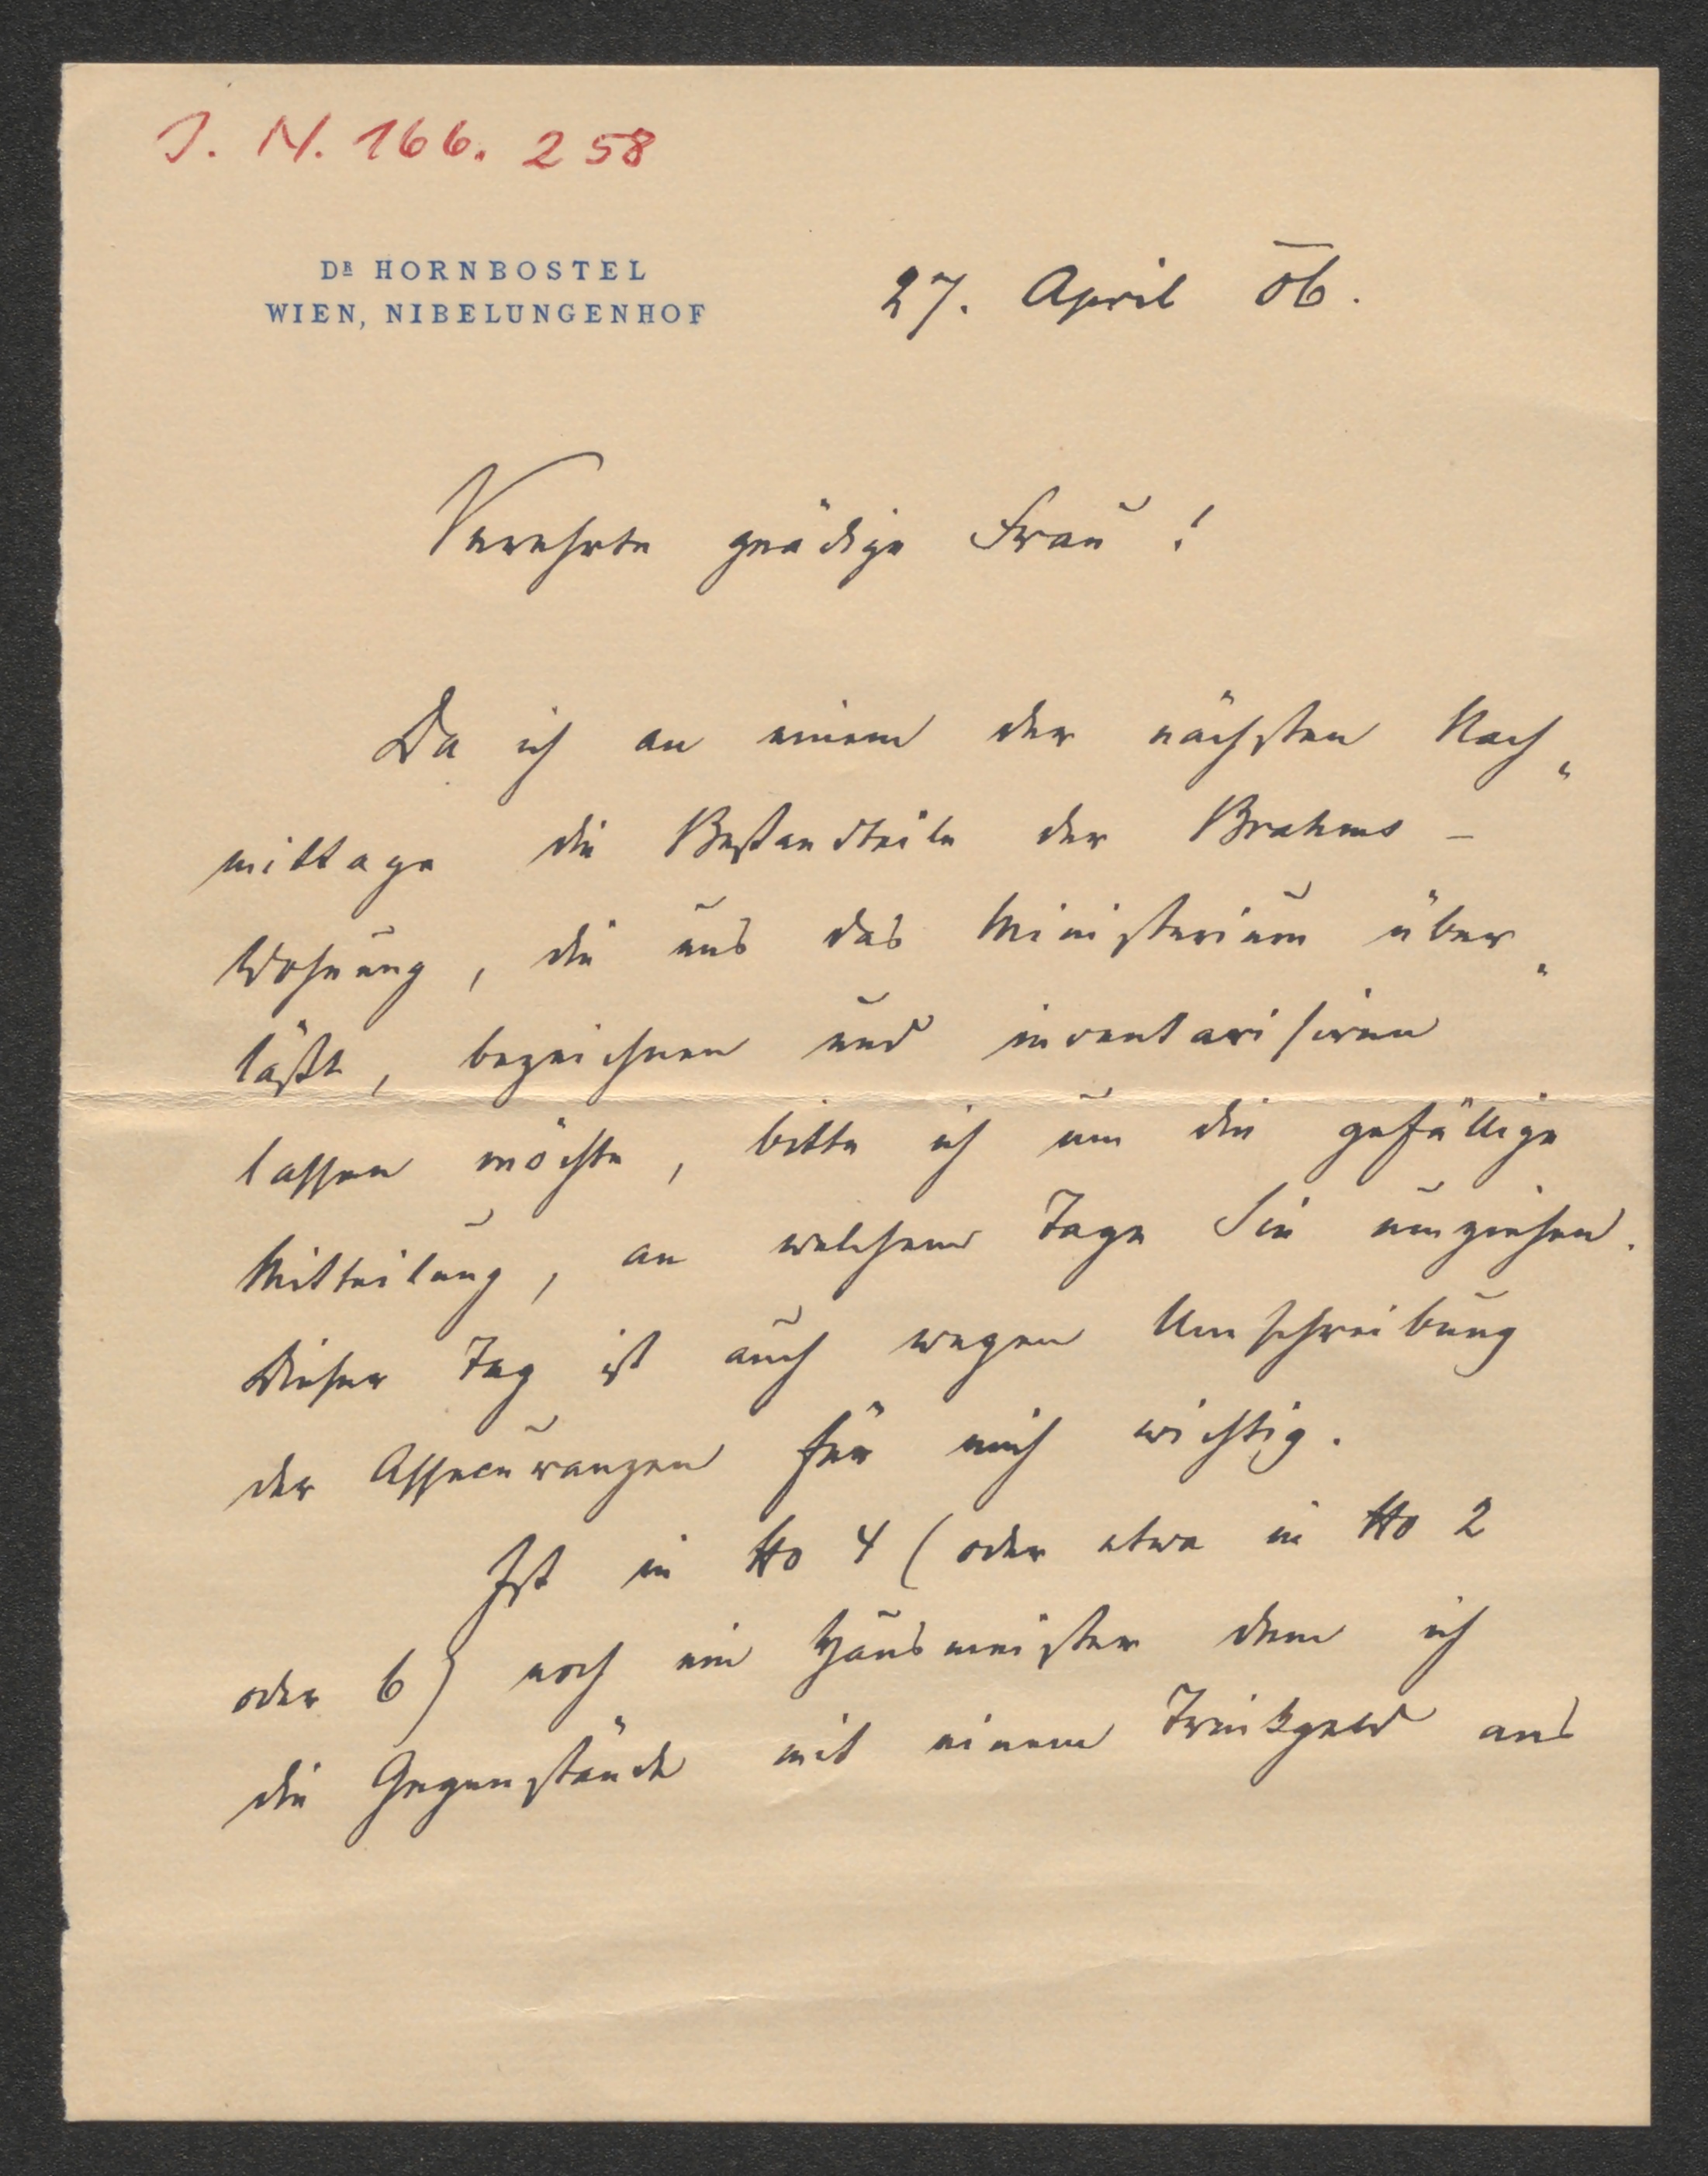 J. N. 166. 258
DR HORNBOSTEL
WIEN, NIBELUNGENHOF
27. April 06.
Verehrte gnädige Frau!
Da ich an einem der nächsten Nach„
mittage die Bestandteile der Brahms-
Wohnung, die uns das Ministerium über„
läßt, bezeichnen und inventarisiren
lassen möchte, bitte ich um die gefällige
Mitteilung, an welchem Tage Sie umziehen.
Dieser Tag ist auch wegen Umschreibung
der Assecuranzen für mich wichtig.
Ist in No 4 (oder etwa in No 2
oder 6) noch ein Hausmeister dem ich
die Gegenstände mit einem Trinkgeld ans